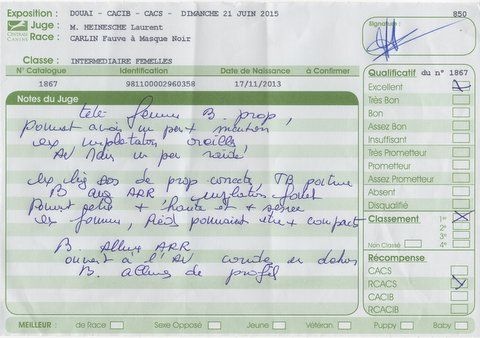 Exposition : DOUAI - CACIB - CACS - DIMANCHE 21 JUIN 2015
850
Juge : M. HEINESCHE Laurent
Signature :
Race : CARLIN Fauve à Masque Noir
CENTRALE CANINE
Classe : INTERMEDIAIRE FEMELLES
N° Catalogue Identification Date de Naissance à Confirmer
1867 981100002960358 17/11/2013
Qualificatif du n° 1867
Excellent
Très Bon
Bon
Assez Bon
Insuffisant
Très Prometteur
Prometteur
Assez Prometteur
Absent
Disqualifié
Classement 1er
2e
3e
4e
Non Classé
Récompense
CACS
RCACS
CACIB
RCACIB
Notes du Juge
tête B. prop,
avoir un peu + menton
ex implantation oreille,
AV dans un peu
de prop correcte TB poitrine
B ang ARR implantation fouet
+ haute et + serrée
ex pieds pourraient être + compacts
B. Allure ARR
ouvert à l'AV coudes en dehors
B. allures de profil
MEILLEUR : de Race Sexe Opposé Jeune Vétéran Puppy Baby